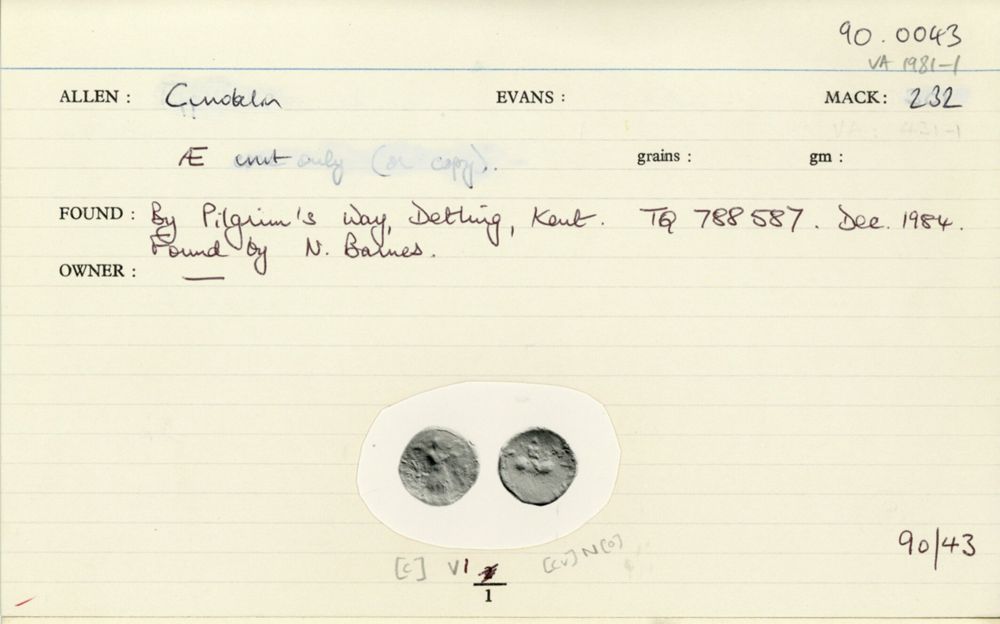 90.0043
VA 1981-1
ALLEN : Cunobelin EVANS : MACK: 232
VA: 421-1
Æ unit only (or copy). grains : gm :
FOUND : By Pilgrim's Way, Detling, Kent. TQ 788 587. Dec. 1984.
Found by N. Barnes.
OWNER : —
90/43
[C] V1 [CV] N[O]
1